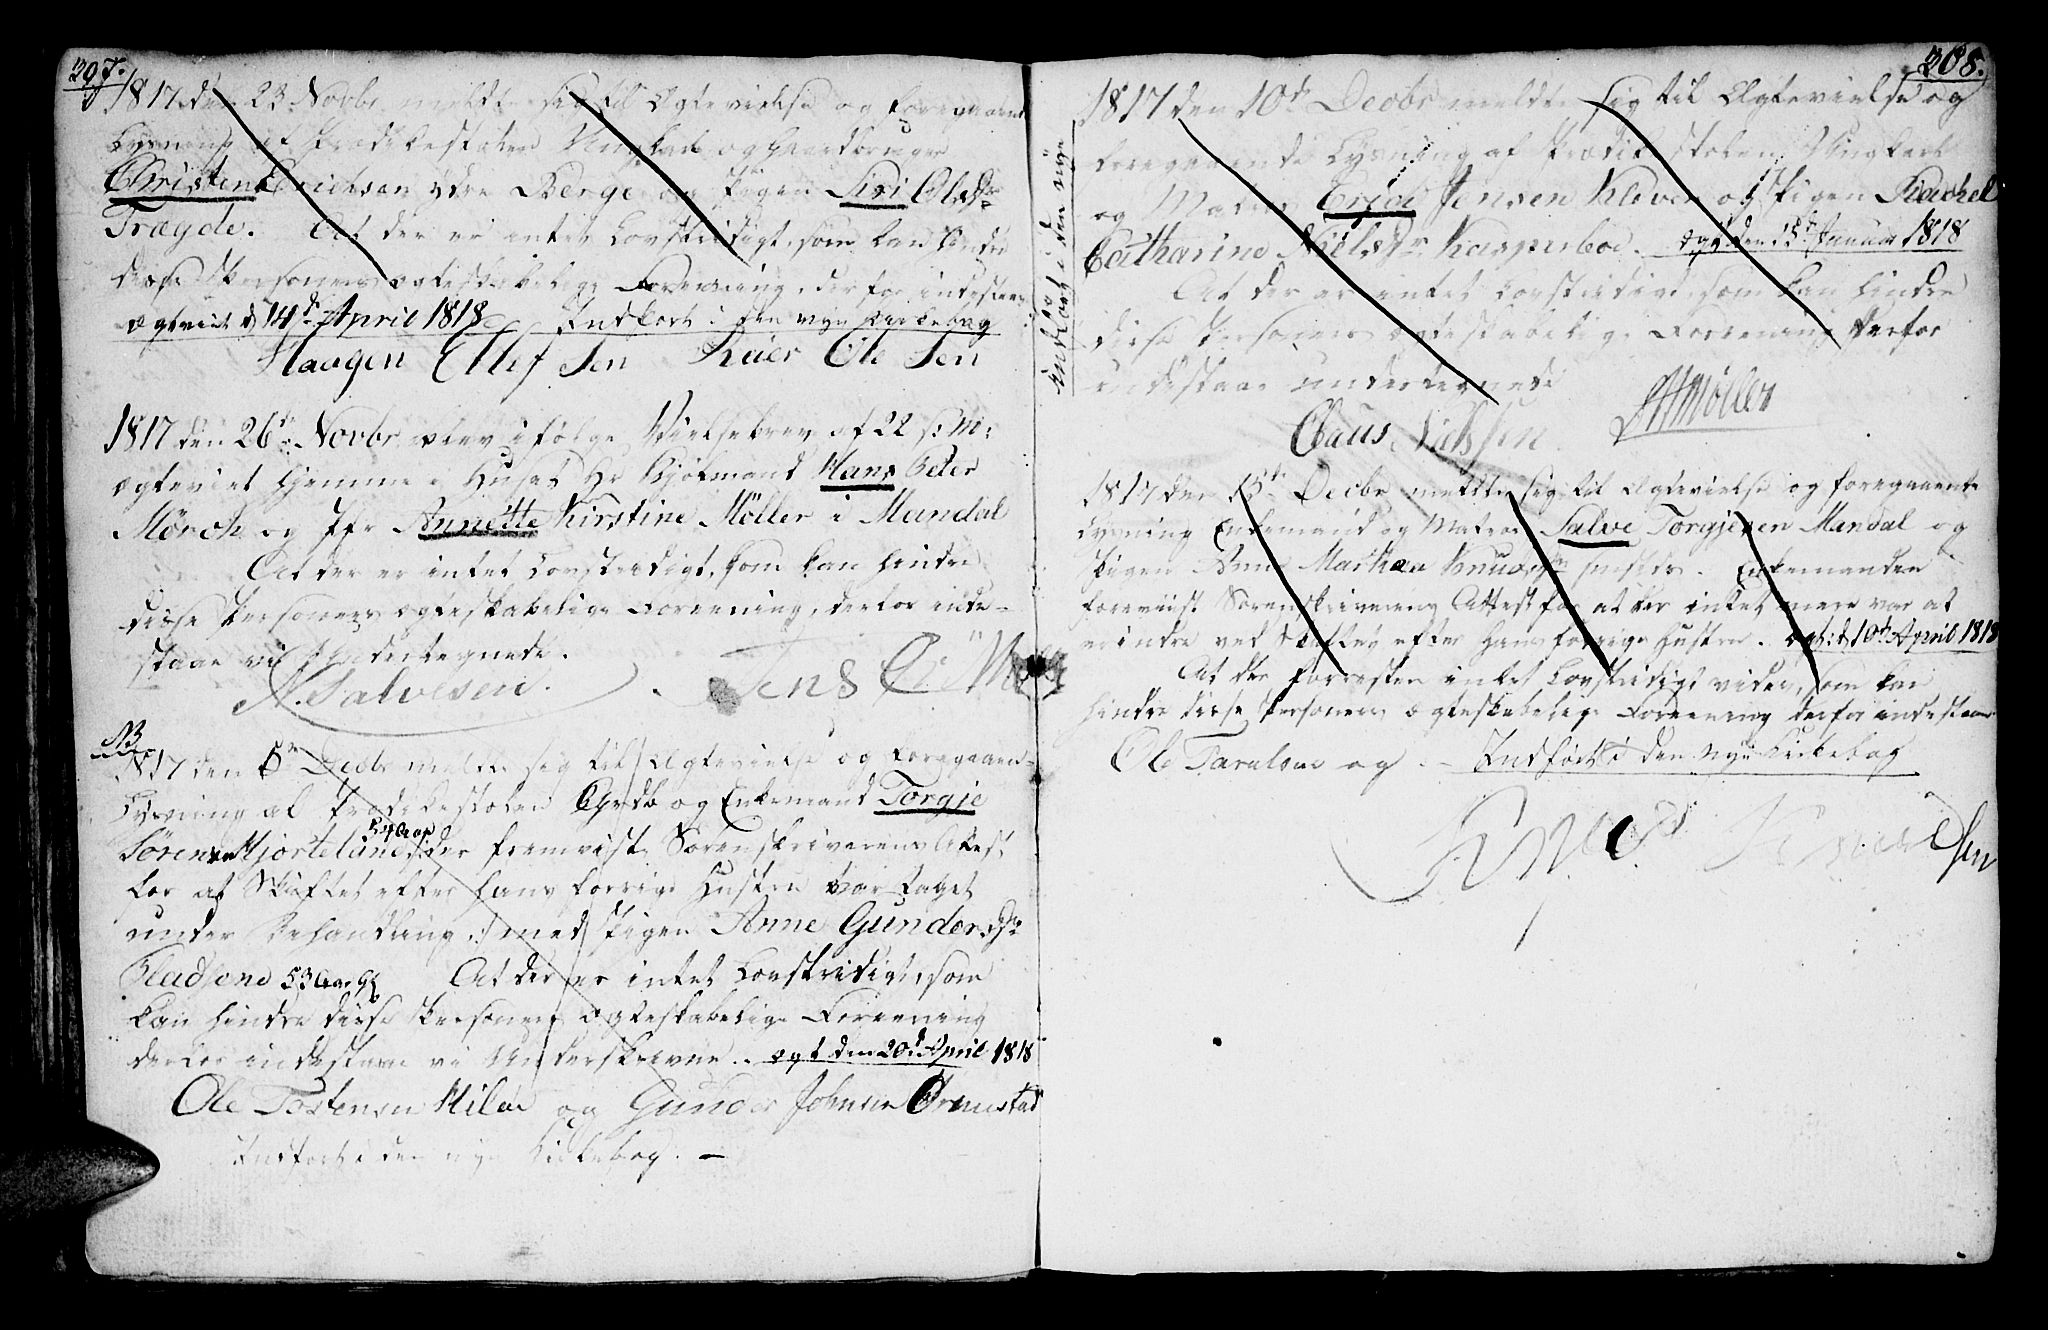 297.
1817 den 23 Novbr meldte sig til Ægtevielse og foregaaend
Lysning af Prædikestolen Ungkarl og Gaardbruger
Christen Erichsen ydre Berge og Pigen Siri Olsdr
Trægde. At der er intet Lovstridigt, som kan hindre
disse Personers ægteskabelige Foreening, derfor indestaaer
Ægteviet d 14de April 1818 Indført i den nye Kirkebog
Haagen Ellef Sen Reier Ole Sen
1817 den 26de Novbr blev ifølge Vielsebrev af 22 s: M:
ægteviet hjemme i Huset Hr Kjøbmand Hans Peter
Mörch og Jfr Annette Kirstine Möller i Mandal
At der er intet Lovstridigt, som kan hindre
disse Personers ægteskabelige Foreening, derfor inde-
staae vi Undertegnede.
N. Salvesen. Jens C.
N3
1817 den 5te Decbr meldte sig til Ægtevielse og foregaaen-
Lysning af Prædikestolen Grdb og Enkemand Torgje
Sörensen Hjortelund der fremviiste Sorenskriverens Attest
for at Skiftet efter hans forrige Hustru var taget
under Behandling :/ med Pigen Anne Gundersdr
Kladsene 53 Aar gl At der er intet Lovstridigt, som
kan hindre disse Personers ægteskabelige Foreening
derfor indestaae vi Underskrevne. ægt den 20d April 1818
Ole Tostensen og Gunder Johnsen Ormestad
Indført i den nye Kirkebog. –
308.
Indført i den nye
1817 den 10de Decbr meldte sig til Ægtevielse og
foregaaende Lysning af Prædikestolen Ungkarl
og Matros Jensen Klever og Pigen Rachel
Catharine Nielsdr Kasperboe. ægt den 15de Januar 1818
At der er intet Lovstridigt, som kan hindre
disse Personers ægteskabelige Foreening derfor
indestaae undertegnede
Claus Nielssen Möller
1817 den 15de Decbr meldte sig til Ægtevielse og foregaaende
Lysning Enkemand og Matros Salve Torgjesen Mandal og
Pigen Anne Marthea Knudsdr Enkemanden
foreviiste Sorenskriverens Attest for at der intet mere var at
erindre ved Skiftet efter hans forrige Hustru. ægt: d 10de April 1818
At der forresten intet Lovstridigt vides, som kan
hindre disse Personers ægteskabelige Foreening derfor indestaae
Ole Tarulsen og – Indført i den nye Kirkebog
Knudsen